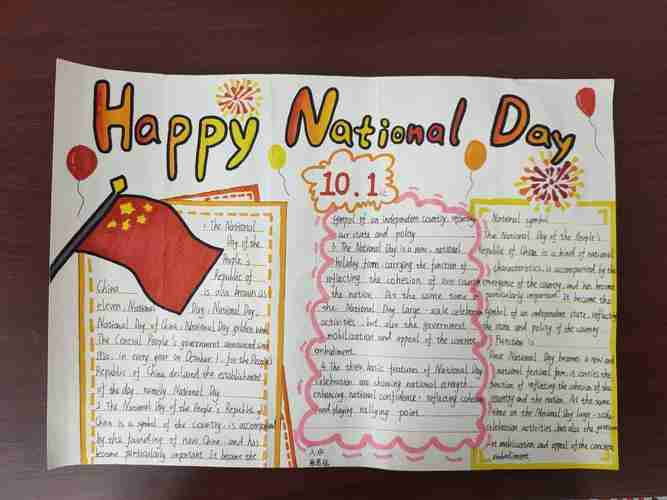 Happy National Day
10.1
1. The National
Day of the
People's
Republic of
China is also known as
eleven, National Day, National Day,
National Day of China, National Day golden week
The Central People's government announced
1949, in every year on October 1, for the People's
Republic of China declared the establishment
of the day, namely National Day.
2. The National Day of the People's Republic of
China is a symbol of the country, is accompanied
by the founding of new China, and has
become particularly important. It became the
symbol of an independent country, reflecting
our state and policy.
3. The National Day is a new, national
holiday form, carrying the function of
reflecting the cohesion of our country
the nation. At the same time
the National Day large scale celebration
activities, but also the government
mobilization and appeal of the concrete
embodiment.
4. The three basic features of National Day
celebration are showing national strength
enhancing national confidence, reflecting cohesion
and playing rallying point.
National symbol
The National Day of the People's
Republic of China is a kind of national
characteristics, is accompanied by the
emergence of the country, and has become
particularly important. It became the
symbol of an independent state, reflecting
the state and polity of the country.
Function is
Once National Day becomes a new and
national festival form, it carries the
function of reflecting the cohesion of the
country and the nation. At the same
time on the National Day large-scale
celebration activities, but also the government
mobilization and appeal of the concrete
embodiment.